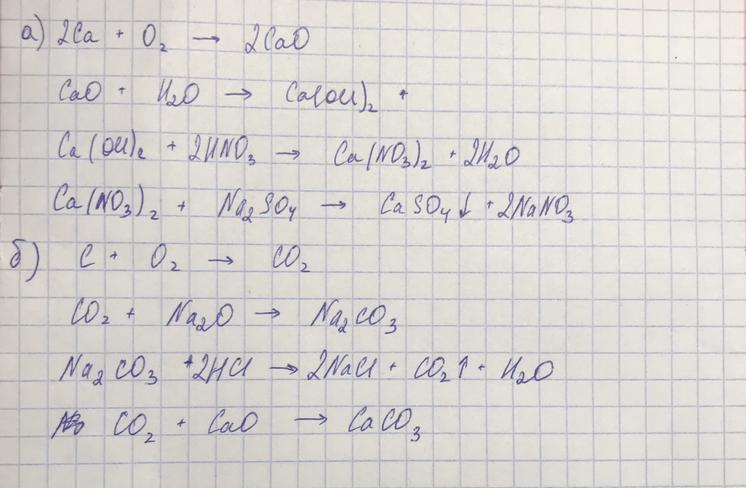 а) 2Ca + O₂ → 2CaO
CaO + H₂O → Ca(OH)₂ +
Ca(OH)₂ + 2HNO₃ → Ca(NO₃)₂ + 2H₂O
Ca(NO₃)₂ + Na₂SO₄ → CaSO₄↓ + 2NaNO₃
б) C + O₂ → CO₂
CO₂ + Na₂O → Na₂CO₃
Na₂CO₃ + 2HCl → 2NaCl + CO₂↑ + H₂O
CO₂ + CaO → CaCO₃